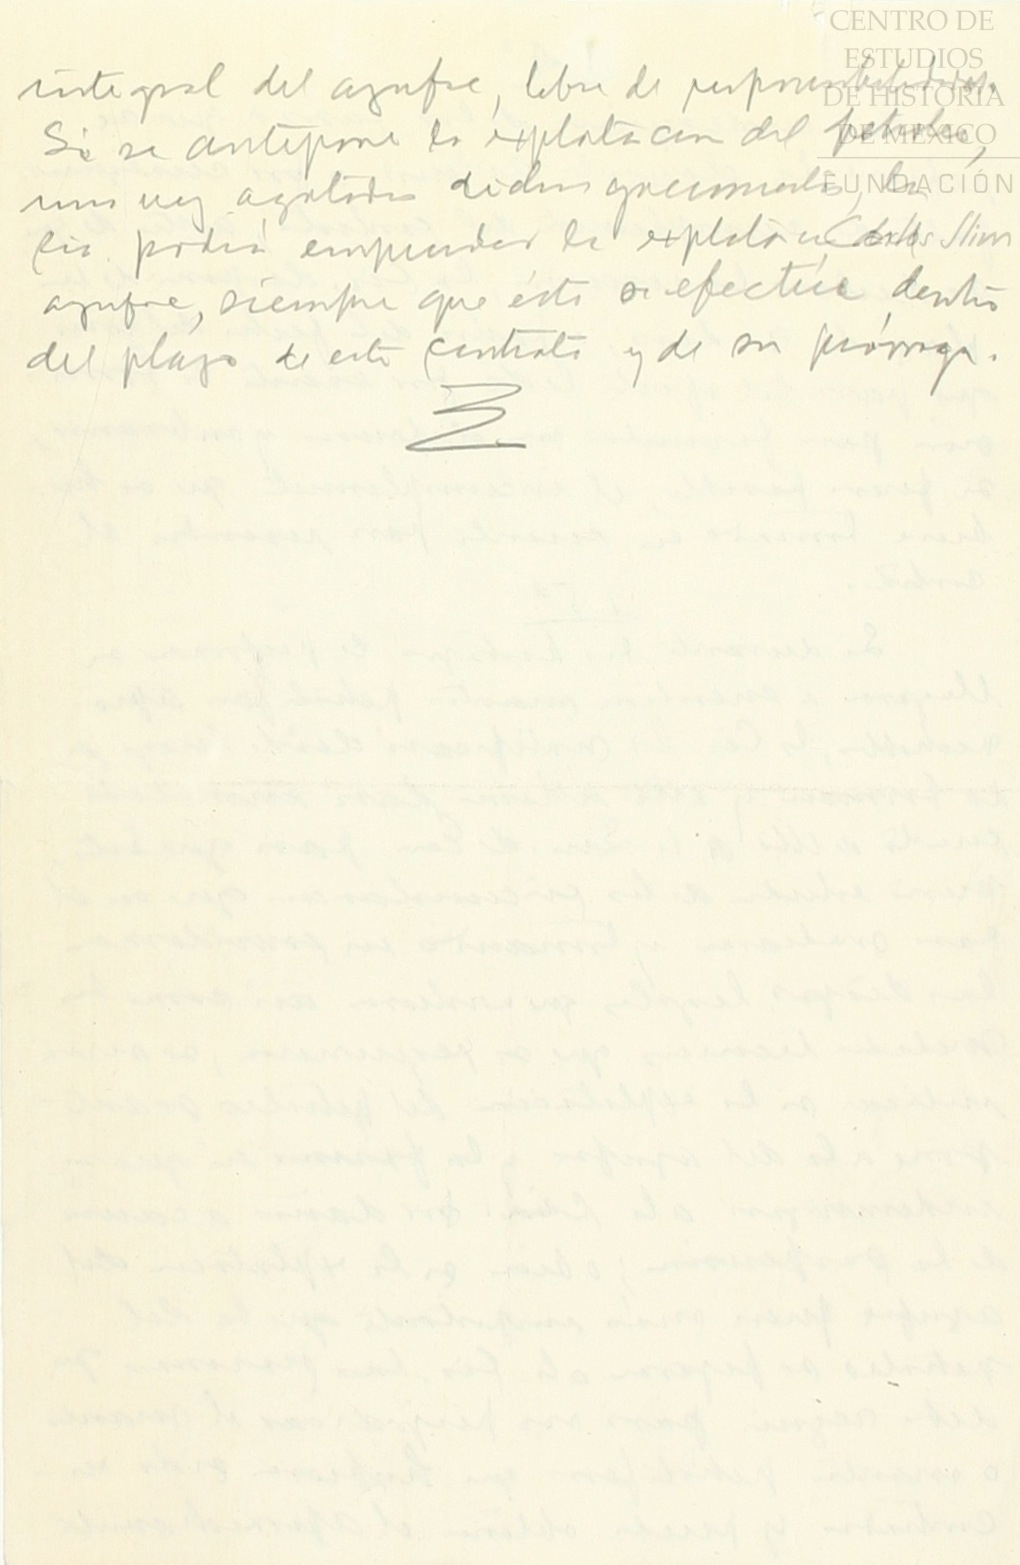 CENTRO DE
ESTUDIOS
DE HISTORIA
DE MÉXICO
FUNDACIÓN
Carlos Slim
integral del azufre, libre de responsabilidades.
Si se antepone la explotación del petróleo,
una vez agotados dichos yacimientos, la
Cía. podrá emprender la explotación del
azufre, siempre que ésta se efectúe dentro
del plazo de este contrato y de su prórroga.